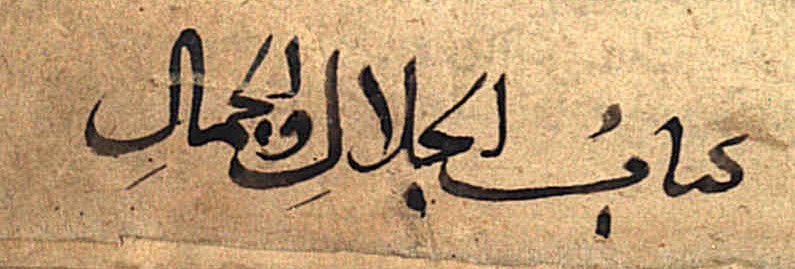 كتابُ الجلالِ والجمالِ